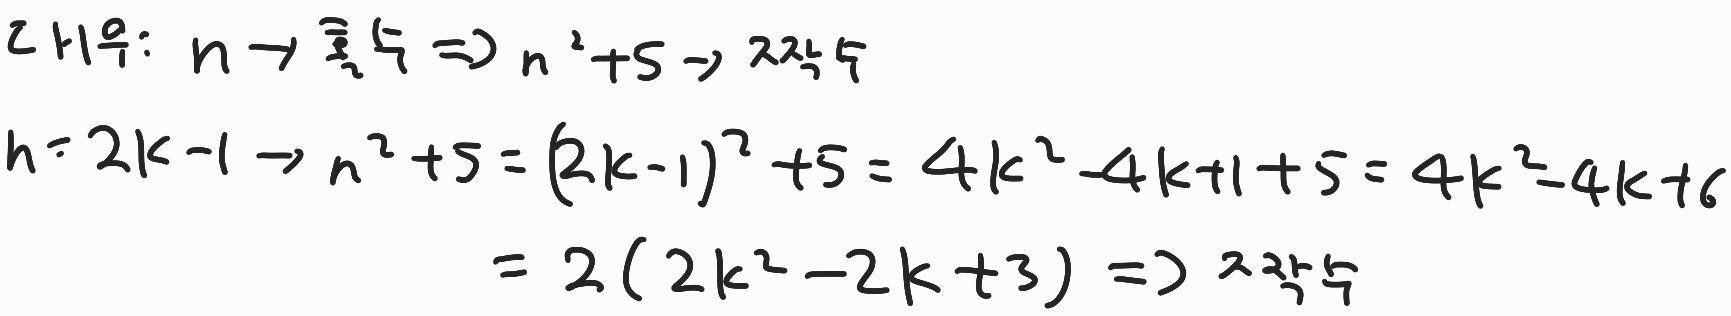 대우: n → 홀수 ⇒ n²+5 → 짝수
n = 2k-1 → n²+5 = (2k-1)²+5 = 4k²-4k+1+5 = 4k²-4k+6
= 2(2k²-2k+3) ⇒ 짝수